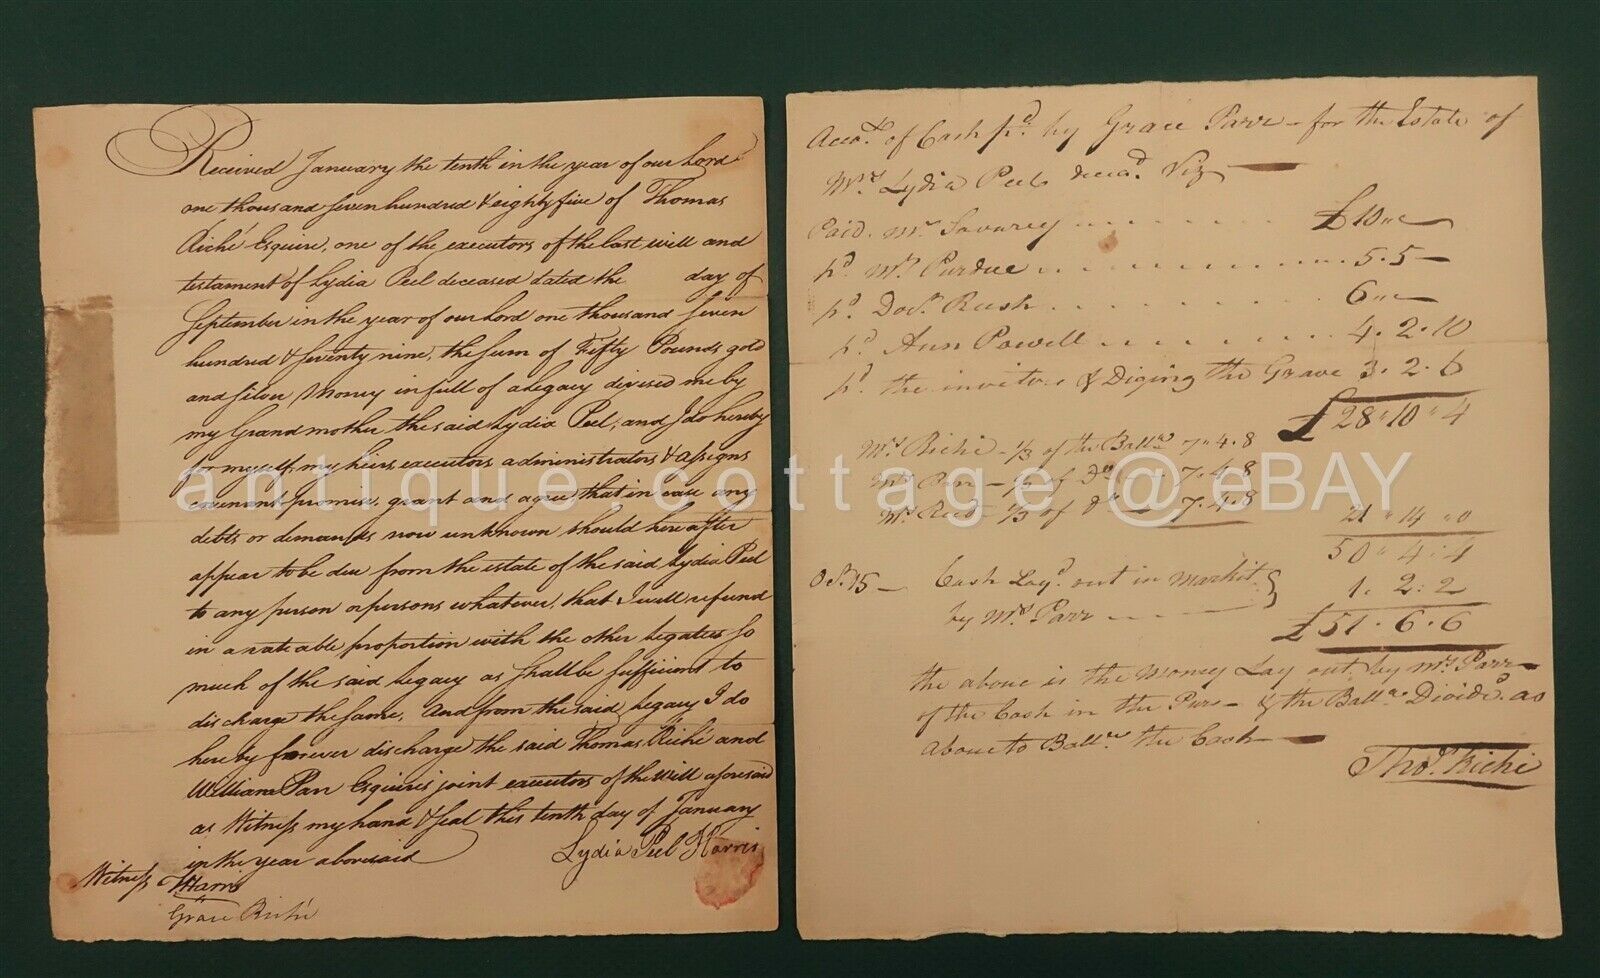 Received January the tenth in the year of our Lord
one thousand seven hundred & eighty five of Thomas
Riché Esquire, one of the executors of the last will and
testament of Lydia Peel deceased dated the day of
September in the year of our Lord one thousand seven
hundred & seventy nine, the sum of Fifty Pounds gold
and silver Money in full of a legacy divised me by
my Grandmother the said Lydia Peel; and I do hereby
for myself, my heirs, executors administrators & assigns
covenant promise, grant and agree that in case any
debts or demands now unknown should hereafter
appear to be due from the estate of the said Lydia Peel
to any person or persons whatever, that I will refund
in a rateable proportion with the other legatees so
much of the said legacy as shall be sufficient to
discharge the same, And from the said legacy I do
hereby forever discharge the said Thomas Riché and
William Parr Esquires joint executors of the will aforesaid
as Witness my hand & seal this tenth day of January
in the year abovesaid
Lydia Peel Harris
Witness Harris
Grace Riché
Accot. of Cash pd. by Grace Parr - for the Estate of
Mrs. Lydia Peel decad. Viz
Paid. Mr Savurey £10
pd. Mr. Purdue 5.5
pd. Docr. Rush 6
pd. Ann Powell 4.2.10
pd. the invitors & Diging the Grave 3.2.6
£28"10"4
Mrs Riche - 1/3 of the Ballce 7"4.8
Mrs Parr - 1/3 of Do 7.4.8
Mr. Reed 1/3 of do 7.4.8
21"14"0
50"4:4
Oct. 15 - Cash Layd. out in Markit
by Mrs Parr 1.2:2
£51.6.6
the above is the Money Lay out by Mrs Parr
of the Cash in the Purs - & the Ballce Dividd. as
above to Ballce the Cash
Thos. Riche
antique cottage @ eBAY